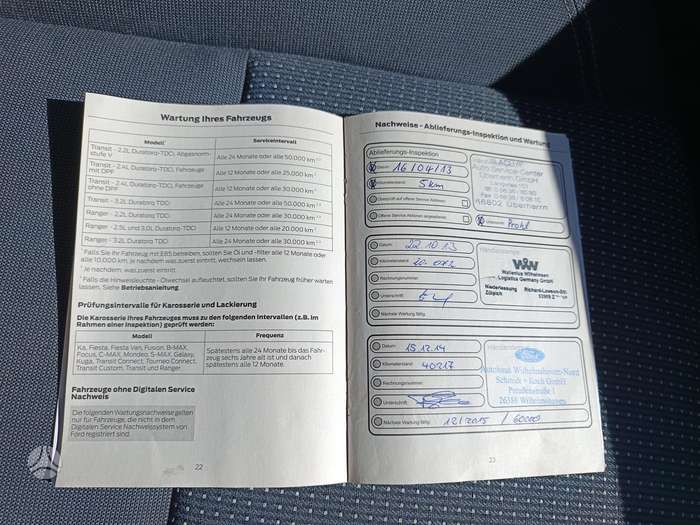 Wartung Ihres Fahrzeugs
Modell Serviceintervall
Transit - 2.2L Duratorq-TDCi, Abgasnorm-
stufe V Alle 24 Monate oder alle 50.000 km
Transit - 2.4L Duratorq-TDCi, Fahrzeuge
mit DPF Alle 12 Monate oder alle 25.000 km
Transit - 2.4L Duratorq-TDCi, Fahrzeuge
ohne DPF Alle 12 Monate oder alle 30.000 km
Transit - 3.2L Duratorq TDCi Alle 24 Monate oder alle 50.000 km
Ranger - 2.2L Duratorq-TDCi Alle 24 Monate oder alle 30.000 km
Ranger - 2.5L und 3.0L Duratorq-TDCi Alle 12 Monate oder alle 20.000 km
Ranger - 3.2L Duratorq TDCi Alle 24 Monate oder alle 30.000 km
Falls Sie Ihr Fahrzeug mit E85 betreiben, sollten Sie Öl und -filter alle 12 Monate oder
alle 10.000 km, je nachdem was zuerst eintritt, wechseln lassen.
Je nachdem, was zuerst eintritt.
Falls die Hinweisleuchte - Ölwechsel aufleuchtet, sollten Sie Ihr Fahrzeug früher warten
lassen. Siehe Betriebsanleitung.
Prüfungsintervalle für Karosserie und Lackierung
Die Karosserie Ihres Fahrzeugs muss zu den folgenden Intervallen (z.B. im
Rahmen einer Inspektion) geprüft werden:
Modell Frequenz
Ka, Fiesta, Fiesta Van, Fusion, B-MAX,
Focus, C-MAX, Mondeo, S-MAX, Galaxy,
Kuga, Transit Connect, Tourneo Connect,
Transit Custom, Transit und Ranger
Spätestens alle 24 Monate bis das Fahr-
zeug sechs Jahre alt ist und danach
spätestens alle 12 Monate.
Fahrzeuge ohne Digitalen Service
Nachweis
Die folgenden Wartungsnachweise gelten
nur für Fahrzeuge, die nicht in dem
Digitalen Service Nachweissystem von
Ford registriert sind.
22
Nachweise - Ablieferungs-Inspektion und Wartung
Ablieferungs-Inspektion
Datum: 16/04/13
Kilometerstand: 5km
Überprüft auf offene Service Aktionen
Offene Service Aktionen abgearbeitet
Auto Service-Center
GmbH
66802 Überherrn
Datum: 22.10.13
Kilometerstand:
Rechnungsnummer:
Unterschrift:
Nächste Wartung fällig:
Wallenius Wilhelmsen
Logistics Germany GmbH
Niederlassung
Zülpich
Datum: 15.12.14
Kilometerstand: 40217
Rechnungsnummer:
Unterschrift:
Nächste Wartung fällig: 12/2015 / 60000
Ford
Autohaus Wilhelmshaven-Nord
Schmidt + Koch GmbH
26388 Wilhelmshaven
23